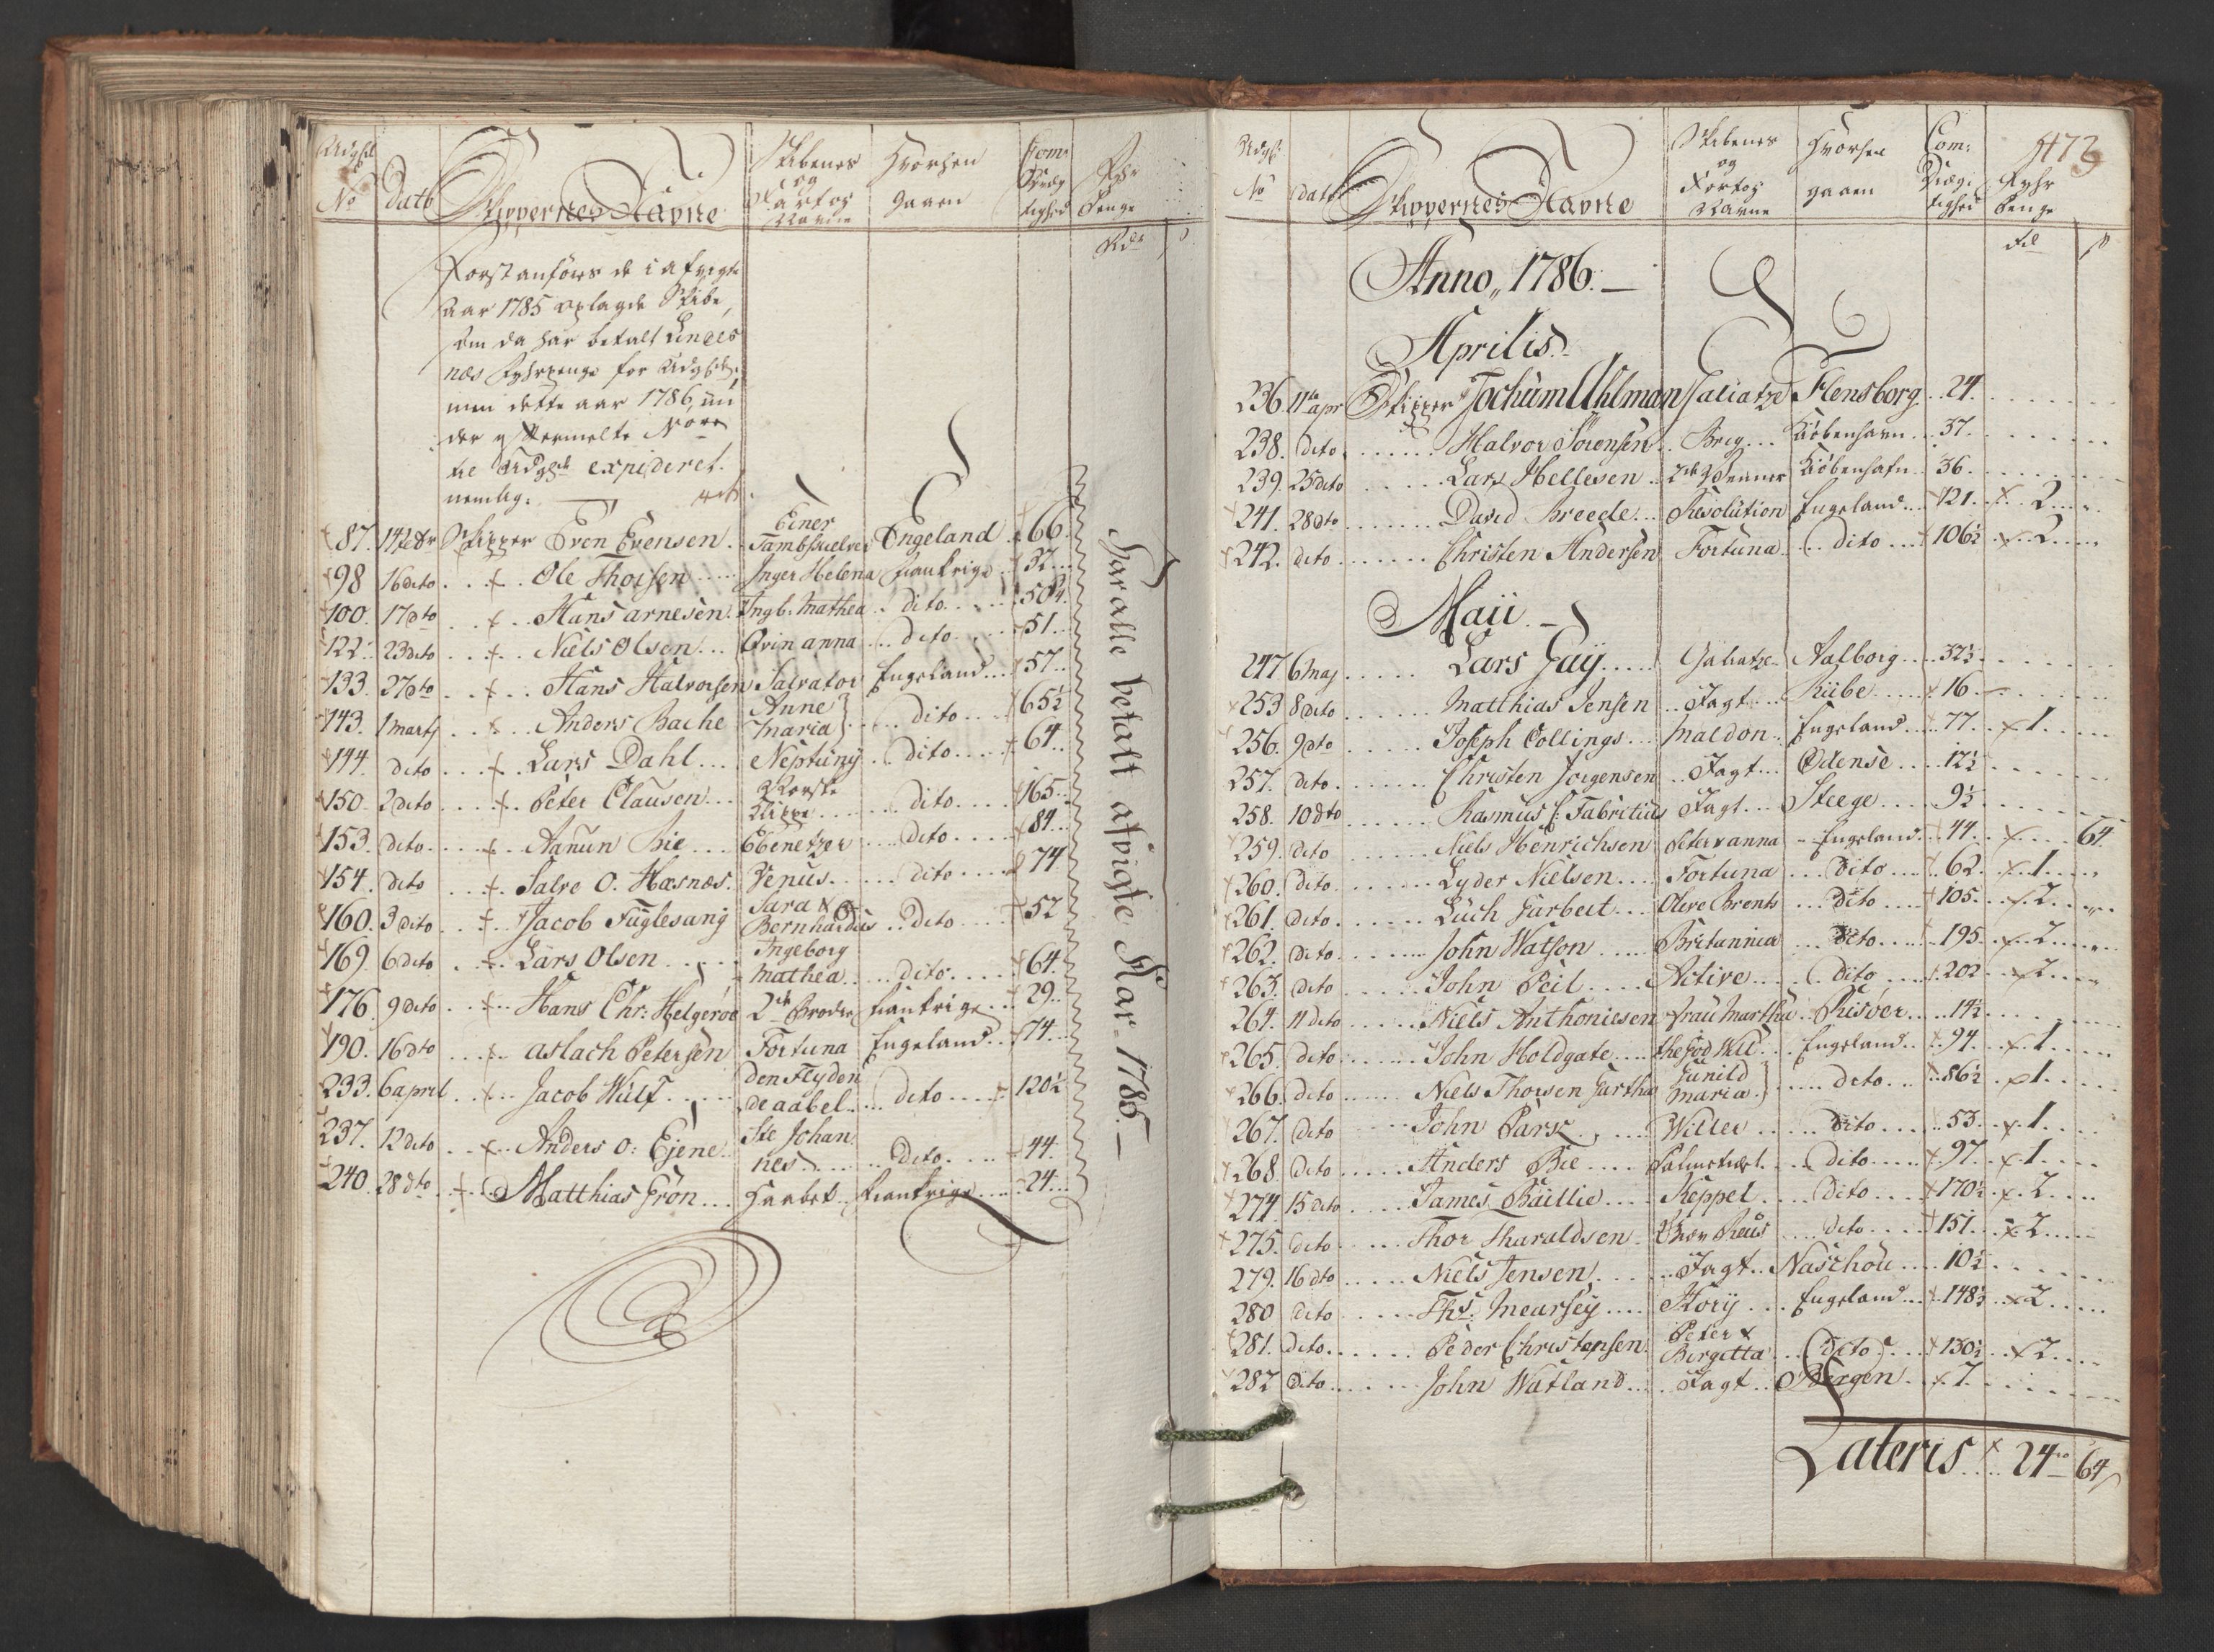 Udgl. No
Dato
Skippernes Navne
Skibenes og Fartøy Navne
Hvorhen gaaen
Com: Drægtighed
Fyhr Penge
Rdr ß
Forst anföres de i afvigte
Aar 1785 oplagde Skibe,
som da har betalt Lindes
næs Fyhrpenge for Udgl.
men dette aar 1786, un
der
expideret.
nemlig:
87. 14 Skipper Even Evensen. Einer Tambskielver Engeland 66.
98 16 dito Ole Thorsen Inger Helena Frankrige 32
100. 17 dto Hans Arnesen. Ingb: Mathea dito 50½.
122. 23 dito Niels Olsen Qvin anna dito 51.
133. 27 dto Hans Halvorsen Salvator Engeland 57.
143. 1 Martj Anders Bache Anne Maria dito 65½
144. dito Lars Dahl Neptuny dito 64.
150. 2 dito Peter Clausen Norske Klippe dito 165.
153. dito. Aanun Bie Ebenetzer dito 84.
154. dito Salve O. Hæsnæs. Venus. dito 74
160. 3 dito Jacob Fuglesang Sara & Bernhardus dito 52
169. 6 dito Lars Olsen Ingeborg Mathea dito 64.
176. 9 dito Hans Chr: Helgeroe 2de Brödre Frankrige 29.
190. 16 dto Aslach Petersen Fortuna Engeland 74.
233. 6 april Jacob Wulf Den Flyden de aabel dito 120½
237. 12 dito Anders O: Ejene Ste Johan nes dito 44.
240. 28 dto Matthias Grön Haabet Frankrige 24.
Har alle betalt afvigte Aar 1785.
473
Udgl. No
Dato
Skippernes Navne
Skibenes og Fartøy Navne
Hvorhen gaaen
Com: Drægtighed
Fyhr Penge
Rdl ß
Anno, 1786.
Aprilis.
236 11te apr Skipper Jochum Uhlman Galiatze Flensborg 24.
238. dito. Halvor Sörensen Brig Kiöbenhavn 37.
239. 25 dito Lars Hellesen 2de Venner Kiöbenhafn 36.
241. 28 dto David Breede Resolution Engeland 121. 2.
242. dito Christen Andersen Fortuna dito 106½ 2.
Maii.
247 6 Maj Lars Gay Galiatze Aalborg 32½
253 8 dito Matthias Jensen Jagt Riibe 16
256. 9 dto Joseph Collings Maldon Engeland 77. 1.
257. dito. Christen Jörgensen Jagt Odense 12½
258. 10 dto Rasmus C: Fabritius Jagt Steege 9½
259. dito Niels Henrichsen Peter & anna Engeland 44. 64
260. dito Lyder Nielsen Fortuna dito 62. 1.
261. dito. Luch Garbert Olive Brents dito 105. 2.
262. dito John Watson Britannia dito 195. 2.
263. dito John Peil Active dito 202 2.
264. 11 dito Niels Anthoniesen Frau Martha Riisöer 14½
265. dito John Holdgate the God Will Engeland 94. 1.
266. dito Niels Thorsen Gartha Gunild Maria dito 86½ 1.
267. dito John Parse Willer dito 53. 1.
268. dito Anders Bie dito 97. 1.
274. 15 dito James Baillie Keppel dito 170½ 2.
275. dito Thor Tharaldsen dito 151. 2.
279. 16 dto Niels Jensen Jagt Naschou 10½
280 dito Ths: Mearsey Story Engeland 148½ 2.
281. dito. Peder Christensen Peter & Birgetta dito 130½ 2.
282 dito John Watland Jagt Bergen 7.
Lateris 24 64